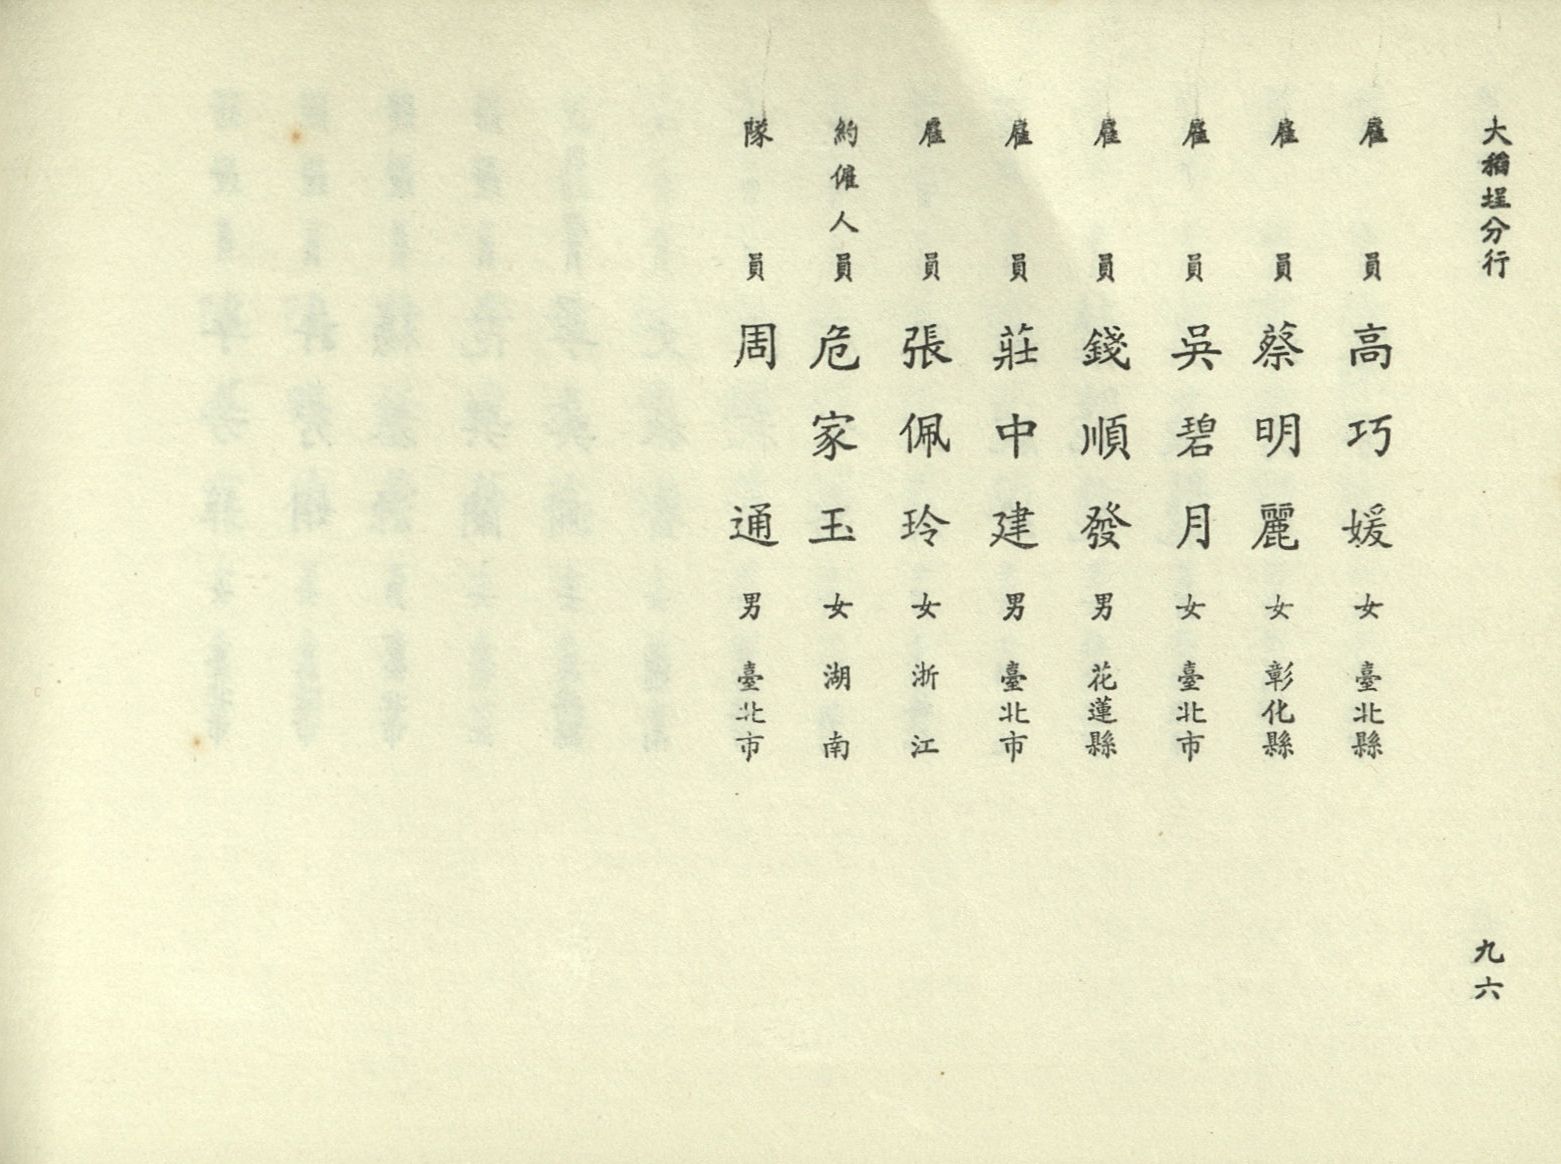 大稻埕分行
九六
雇員高巧媛女臺北縣
雇員蔡明麗女彰化縣
雇員吳碧月女臺北市
雇員錢順發男花蓮縣
雇員莊中建男臺北市
雇員張佩玲女浙江
約僱人員危家玉女湖南
隊員周通男臺北市